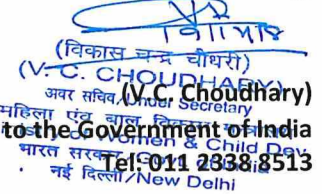 (विकास चन्द्र चौधरी)
(V. C. CHOUDHARY)
अवर सचिव/Under Secretary
(V.C. Choudhary)
महिला एंव बाल विकास
to the Government of India
Women & Child Dev.
भारत सरकार/Govt. India
Tel: 011 2338 8513
नई दिल्ली/New Delhi